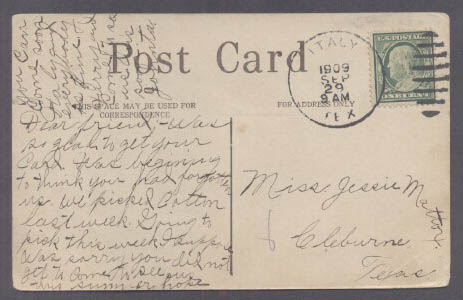 Post Card
THIS SPACE MAY BE USED FOR
CORRESPONDENCE
FOR ADDRESS ONLY
ITALY
1909
SEP
29
9 AM
TEX
Dear friend, Was
so glad to get your
Card. Was beginning
to think you had forgotten
us. We picked Cotton
last week. Going to
pick this week I suppose
Was sorry you did not
get to Come to see us
this summer hope
you Can
Come soon
Miss Jessie
Cleburne
Texas